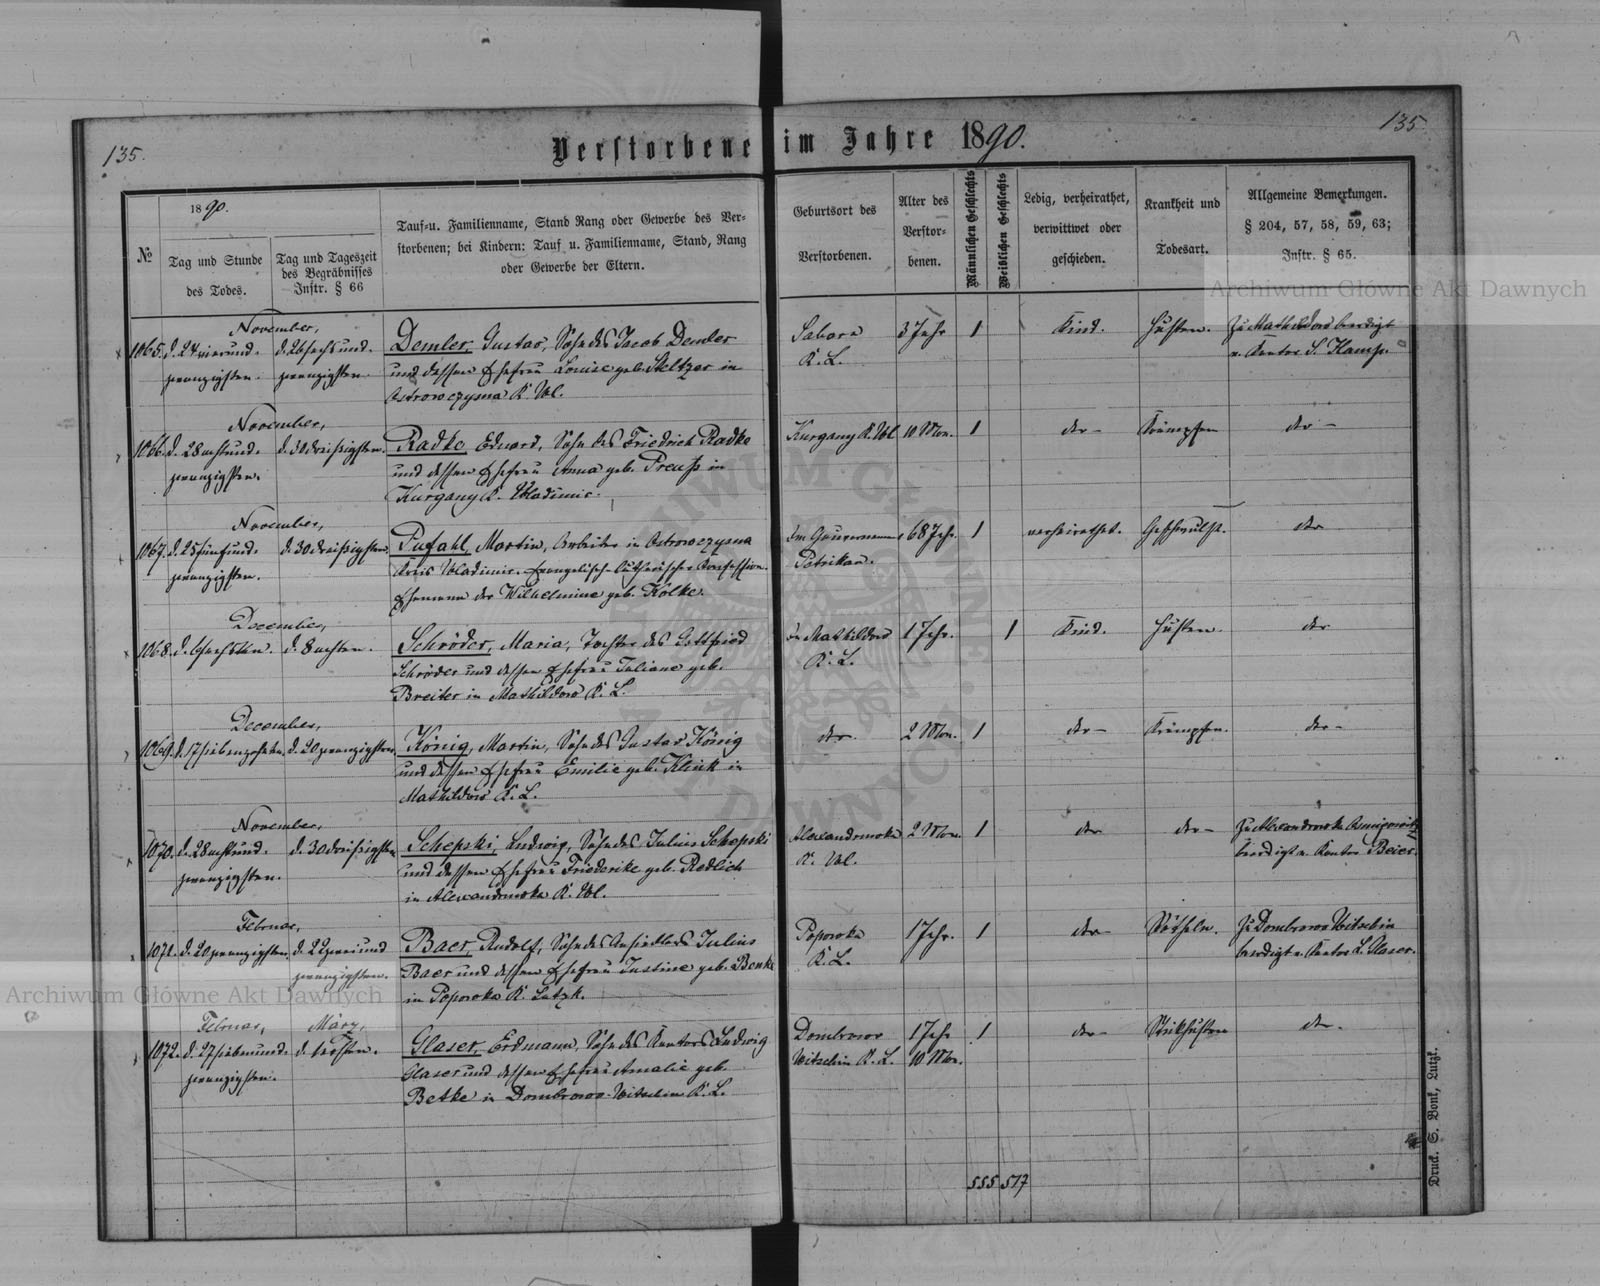 135.
Verstorbene im Jahre 1890.
135
№
1890.
Tag und Stunde
des Todes.
Tag und Tageszeit
des Begräbnisses
Instr. § 66
Tauf- u. Familienname, Stand Rang oder Gewerbe des Ver-
storbenen; bei Kindern: Tauf u. Familienname, Stand, Rang
oder Gewerbe der Eltern.
Geburtsort des
Verstorbenen.
Alter des
Verstor-
benen.
Männlichen Geschlechts
Weiblichen Geschlechts
Ledig, verheirathet,
verwittwet oder
geschieden.
Krankheit und
Todesart.
Allgemeine Bemerkungen.
§ 204, 57, 58, 59, 63;
Instr. § 65.
November,
1065. d. 24 vierund-
zwanzigsten.
d. 26 sechsund-
zwanzigsten.
Demler, Gustav, Sohn des Jacob Demler
und dessen Ehefrau Louise geb. Steltzer in
Ostrowczyzna K. Wl.
Sabara
K. L.
3 Jahr
1
Kind.
Husten.
Zu Mathildow beerdigt
v. Kantor S. Hamp.
November,
1066. d. 28 achtund-
zwanzigsten.
d. 30 dreißigsten.
Radke, Eduard, Sohn des Friedrich Radke
und dessen Ehefrau Anna geb. Preuß in
Kurgany K. Wladimir.
Kurgany K. Wl.
10 Mon.
1
der-
Krämpfen
der-
November,
1067. d. 25 fünfund-
zwanzigsten.
d. 30 dreißigsten.
Pufahl, Martin, Arbeiter in Ostrowczyzna
Kreis Wladimir. Evangelisch-Lutherischer Confession.
Ehemann der Wilhelmine geb. Kolke.
Im Gouvernement
Petrikau.
68 Jahr.
1
verheirathet.
Geschwulst.
der
December,
1068. d. 6 sechsten.
d. 8 achten.
Schröder, Maria, Tochter des Gottfried
Schröder und dessen Ehefrau Juliane geb.
Breiter in Mathildow K. L.
In Mathildow
K. L.
1 Jahr.
1
Kind.
Husten.
der
December,
1069. d. 17 siebenzehnten.
d. 20 zwanzigsten.
König, Martin, Sohn des Gustav König
und dessen Ehefrau Emilie geb. Klink in
Mathildow K. L.
der
2 Mon.
1
der-
Krämpfen.
der-
November,
1070. d. 28 achtund-
zwanzigsten.
d. 30 dreißigsten
Schepski, Ludwig, Sohn des Julius Schepski
und dessen Ehefrau Friederike geb. Redlich
in Alexandrowka K. Wl.
Alexandrowka
K. Wl.
2 Mon.
1
der
der-
Zu Alexandrowka
beerdigt v. Kantor Beier.
Februar,
1071. d. 20 zwanzigsten.
d. 22 zweiund
zwanzigsten.
Baer, Rudolf, Sohn des Ansiedlers Julius
Baer und dessen Ehefrau Justine geb. Benke
in Poporoka K. Lutzk.
Poporoka
K. L.
1 Jahr.
1
der
Rötheln.
Zu Dombrowo Witschin
beerdigt v. Kantor L. Glaser.
Februar,
März,
1072. d. 27 siebenund-
zwanzigsten.
d. 1 ersten.
Glaser, Erdmann, Sohn des Kantors Ludwig
Glaser und dessen Ehefrau Amalie geb.
Betke in Dombrowo-Witschin K. L.
Dombrowo
Witschin K. L.
1 Jahr
10 Mon.
1
der-
Stickhusten
der.
555 517
Druck. G. Bonk, Lutzk.
Archiwum Główne Akt Dawnych
Archiwum Główne Akt Dawnych
ARCHIWUM GŁÓWNE AKT DAWNYCH